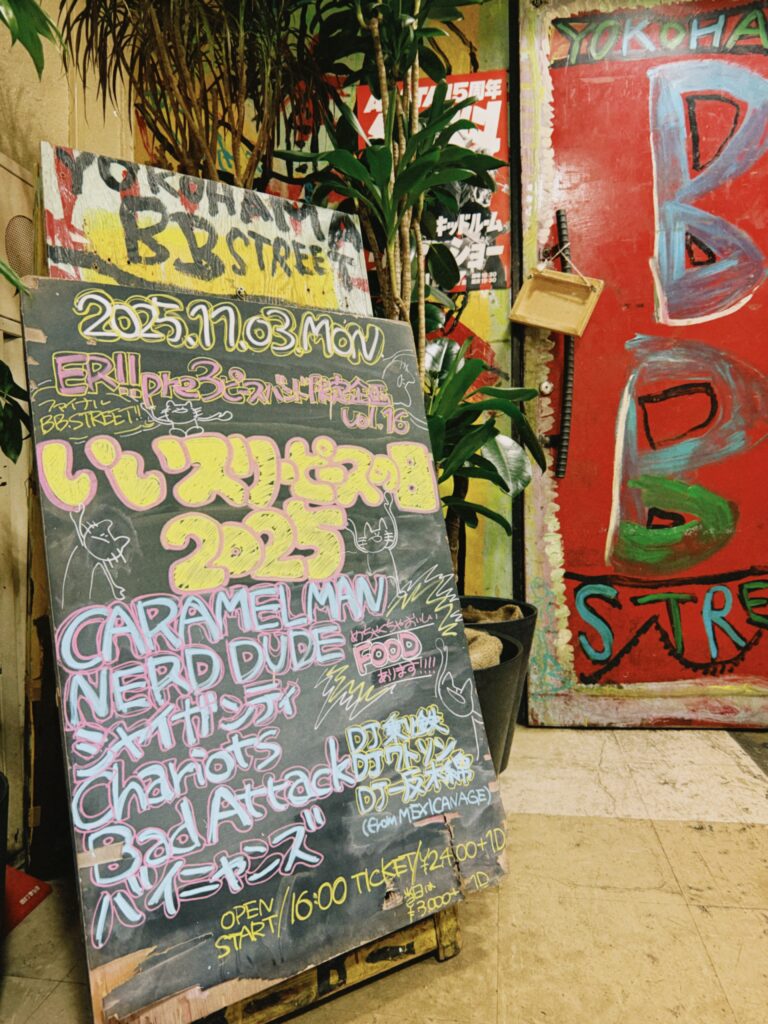 YOKOHAMA
BB STREET
2025.11.03.MON
ER!! pre3ピースバンド限定企画
vol.16
ファイナル
BB.STREET!!
いいスリーピースの日
2025
CARAMELMAN
NERD DUDE
シャイガンティ
Chariots
Bad Attack
バイニャンズ
めちゃくちゃおいしい
FOOD
あります!!!!
DJ 乗り鉄
DJワトソン
DJ一反木綿
(from MEXICANAGE)
OPEN
START/16:00 TICKET/¥2400+1D
当日は
¥3,000+1D
15周年
キッドルーム
ショー
YOKOHA
BB
STREE